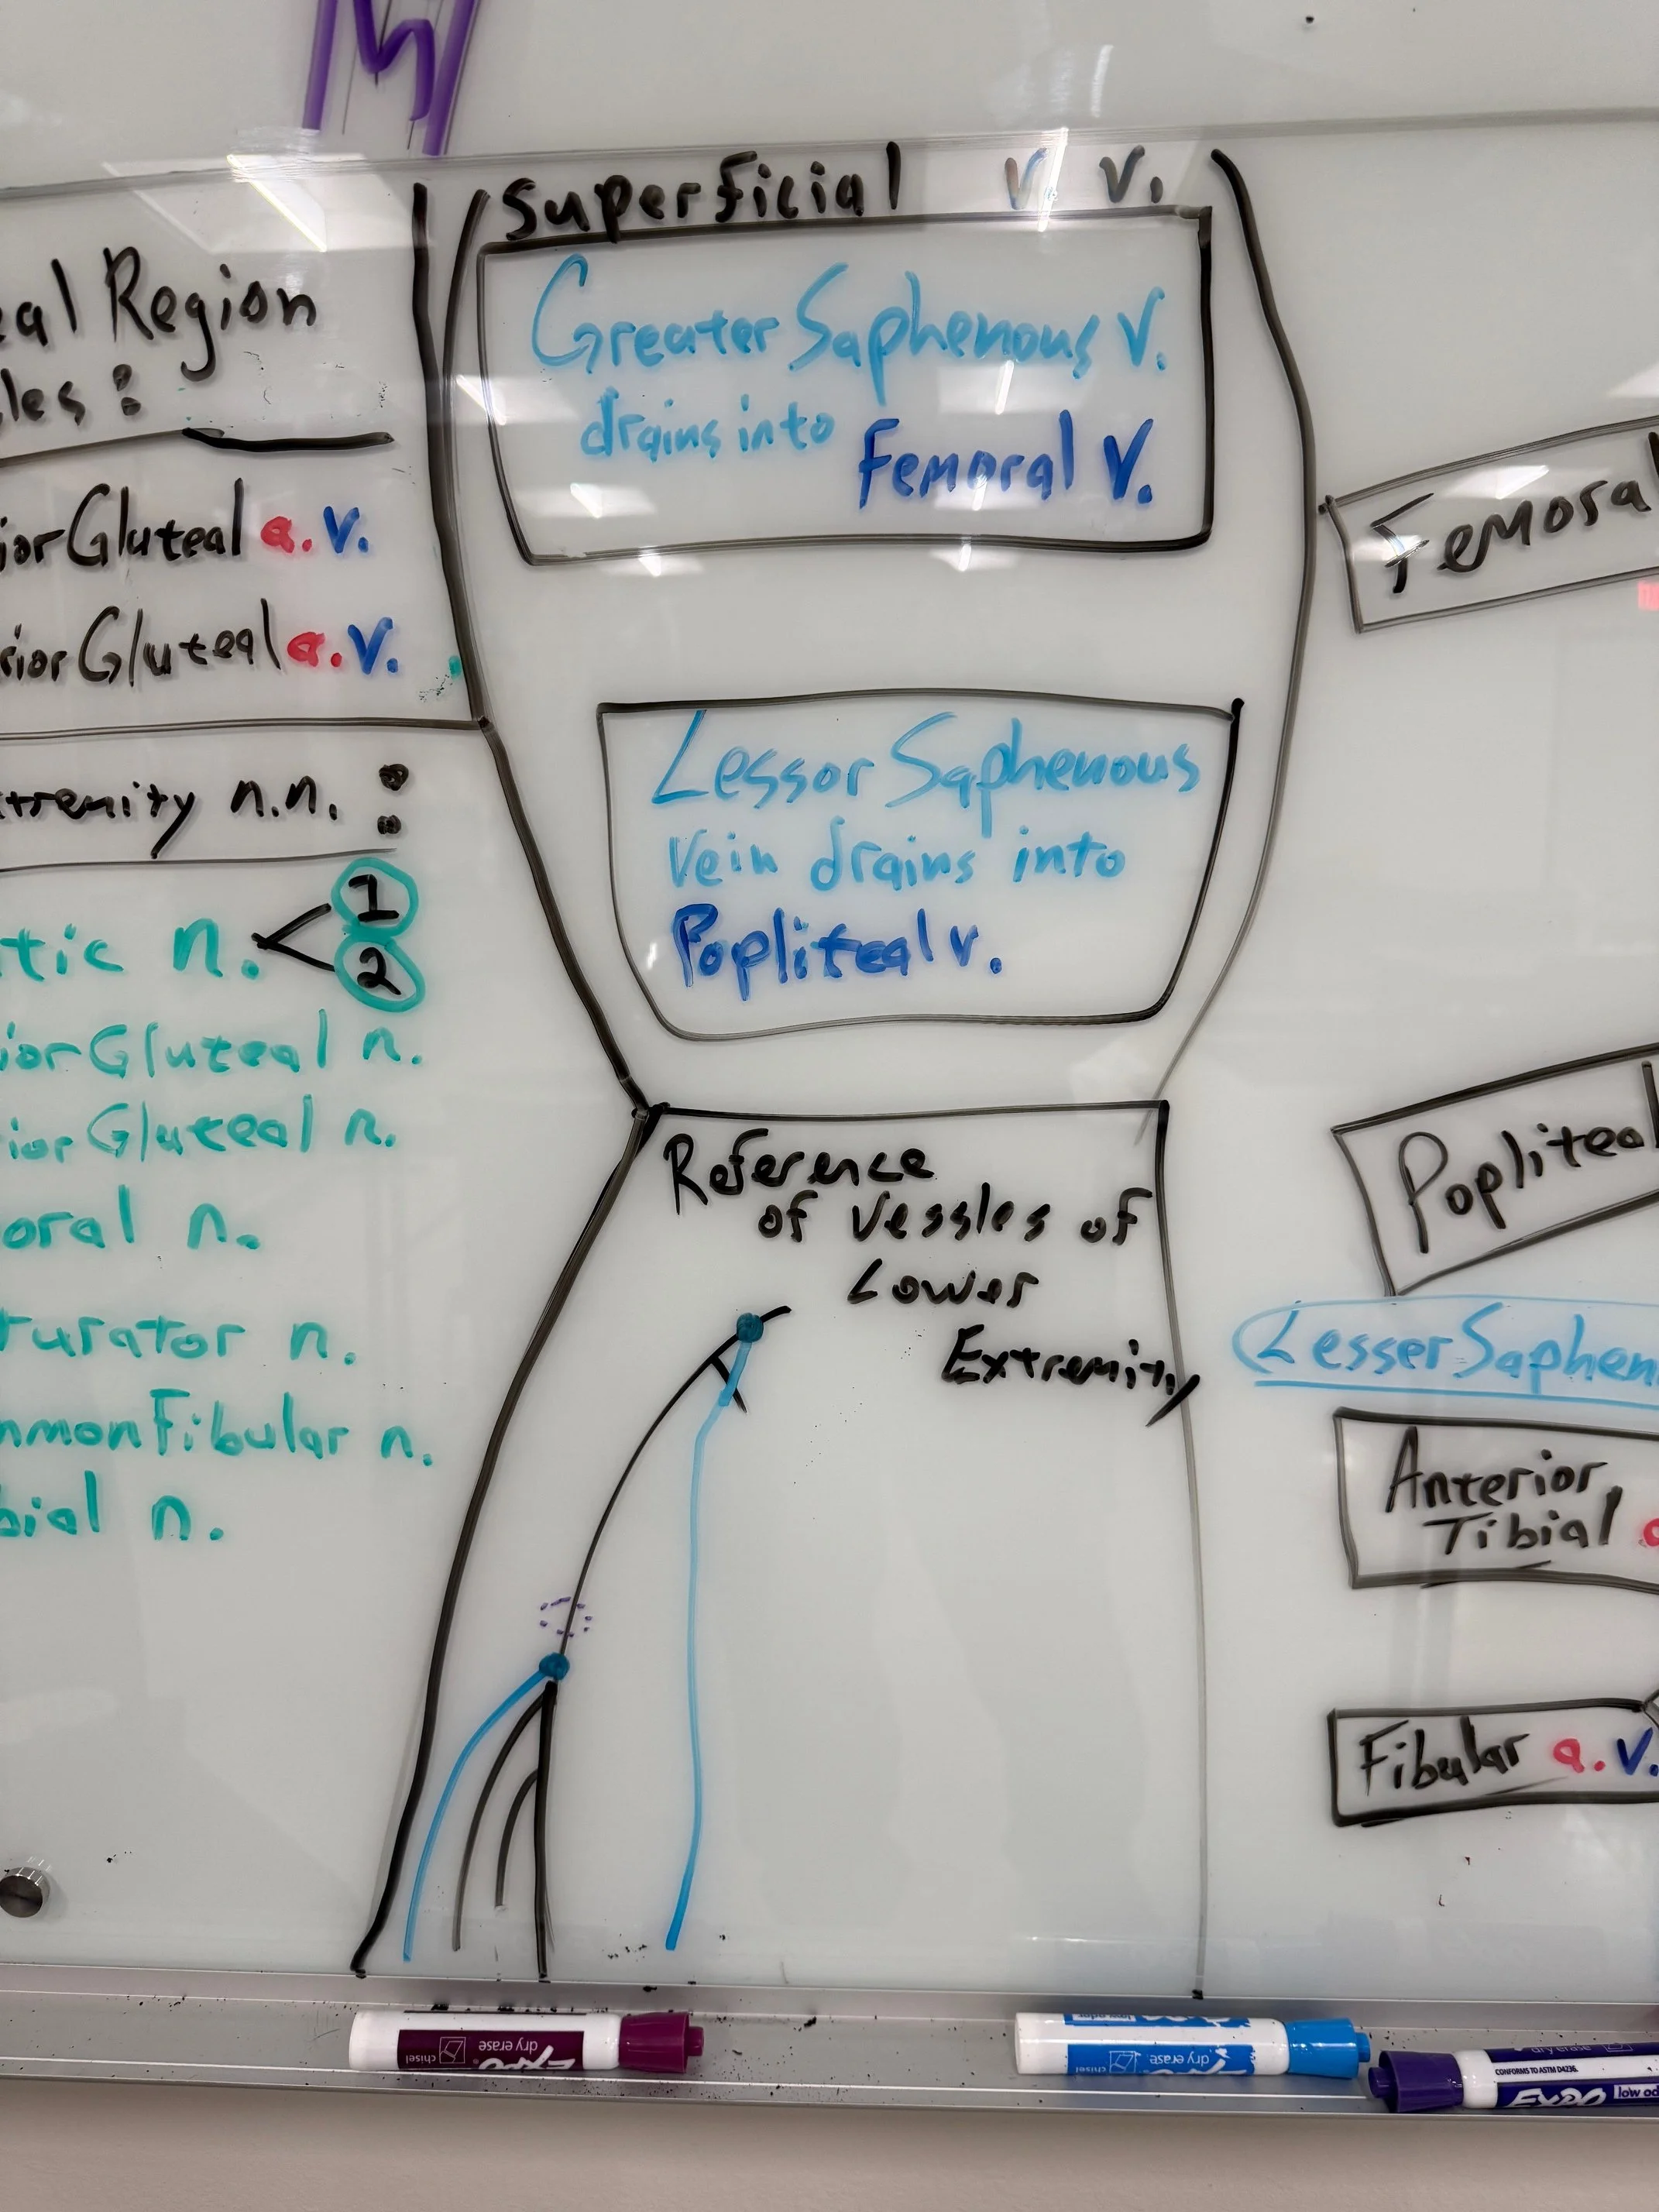 Superficial v. v.
Greater Saphenous v.
drains into Femoral v.
Lessor Saphenous
vein drains into
Popliteal v.
Reference
of vessles of
Lower
Extremity
eal Region
les:
ior Gluteal a. v.
rior Gluteal a. v.
xtremity n.n. :
tic n. < 1
2
ior Gluteal n.
ior Gluteal n.
oral n.
turator n.
mmon Fibular n.
bial n.
Femoral
Popliteal
Lesser Saphen
Anterior
Tibial a
Fibular a. v.
chisel dry erase EXPO
chisel dry erase
dry erase
CONFORMS TO ASTM D4236.
EXPO low od